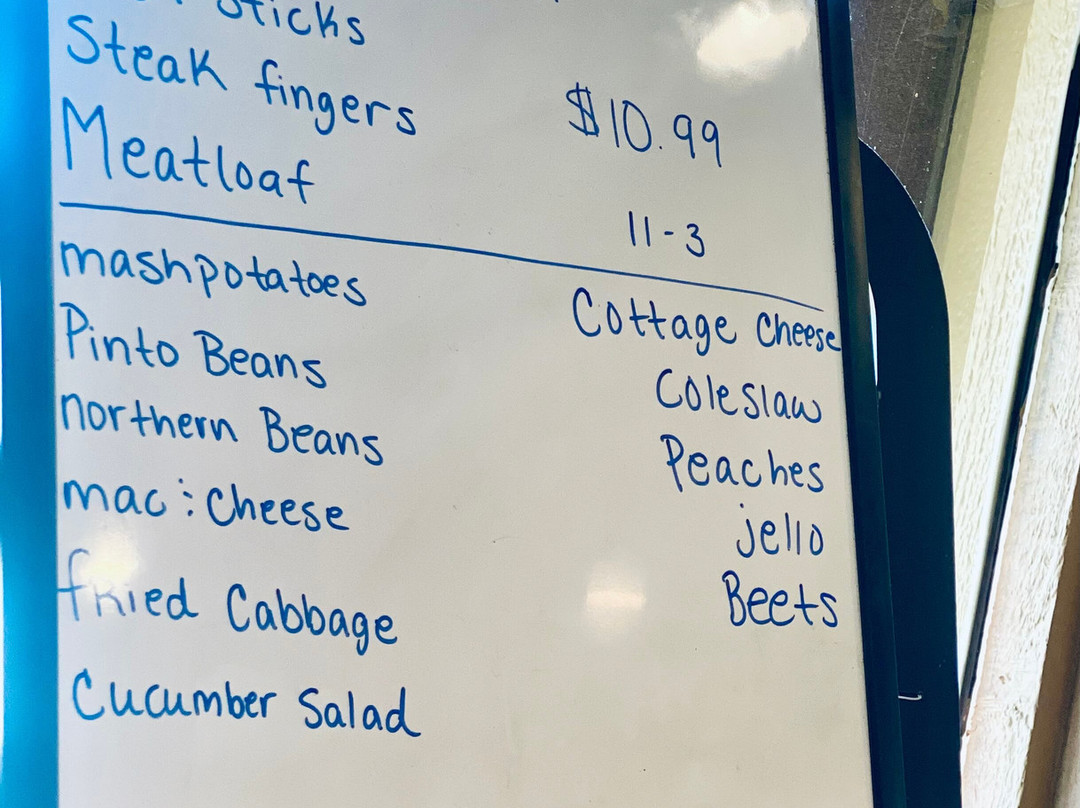 Sticks
Steak fingers
$10.99
Meatloaf
11-3
mashpotatoes
Cottage Cheese
Pinto Beans
Coleslaw
northern Beans
Peaches
mac : Cheese
jello
fried Cabbage
Beets
Cucumber Salad